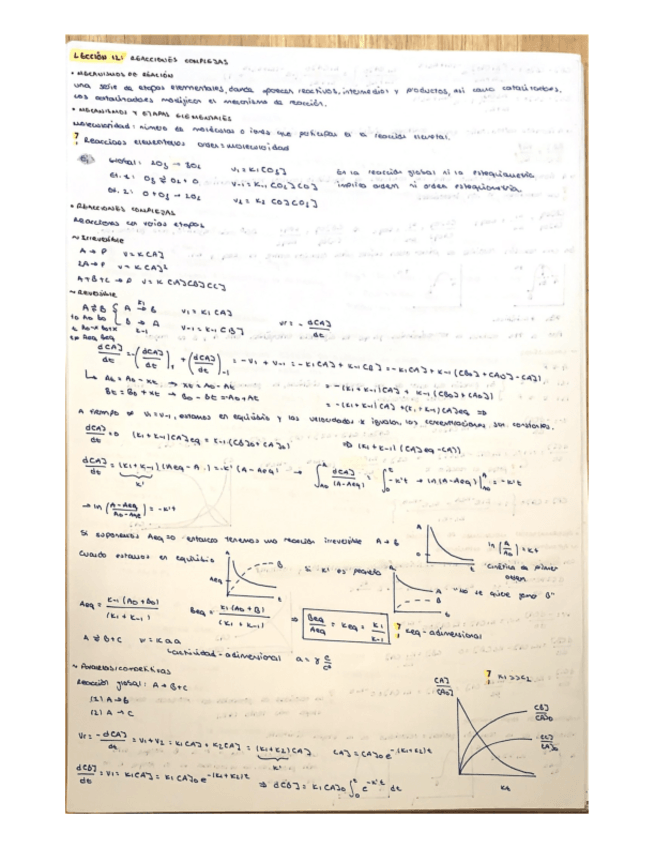 LECCIÓN 12: REACCIONES COMPLEJAS
• MECANISMOS DE REACCIÓN
una serie de etapas elementales, donde aparecen reactivos, intermedios y productos, así como catalizadores.
Los catalizadores modifican el mecanismo de reacción.
• MECANISMOS Y ETAPAS ELEMENTALES
Molecularidad: número de moléculas o iones que participan en la reacción elemental.
Reacciones elementales orden = molecularidad
Ej Global: 2O3 → 3O2
Et. 1: O3 ⇄ O2 + O v1 = K1 [O3]
v-1 = K-1 [O2][O]
Et. 2: O + O3 → 2O2 v2 = K2 [O][O3]
En la reacción global ni la estequiometría
implica orden ni orden estequiometría
• REACCIONES COMPLEJAS
Reacciones en varias etapas
~ Irreversible
A → P v = K[A]
2A → P v = K[A]²
A+B+C → P v = K[A][B][C]
~ Reversible
A ⇄ B { A → B v1 = K1 [A]
B → A v-1 = K-1 [B] vr = - d[A]/dt
d[A]/dt = (d[A]/dt)1 + (d[A]/dt)-1 = -v1 + v-1 = -K1[A] + K-1[B] = -K1[A] + K-1([B]0 + [A]0 - [A])
At = A0 - xt → xt = A0 - At = -(K1+K-1)[A] + K-1([B]0+[A]0)
Bt = B0 + xt → = -(K1+K-1)[A] + (K1+K-1)[A]eq ⇒
A tiempo ∞ v1 = v-1, estamos en equilibrio y las velocidades se igualan, las concentraciones son constantes.
d[A]/dt = 0 (K1+K-1)[A]eq = K-1([B]0+[A]0) ⇒ (K1+K-1)([A]eq-[A])
d[A]/dt = (K1+K-1)(Aeq - A) = -K'(A-Aeq) → ∫ d[A]/(A-Aeq) = ∫ -K't → ln(A-Aeq) = -K't
K'
→ ln (A-Aeq / A0-Aeq) = -K't
Si suponemos Aeq = 0 entonces tenemos una reacción irreversible A → B
ln (A/A0) = Kt
Cinética de primer orden
Cuando estamos en equilibrio
Si K1 es pequeña
"No se quiere formar B"
Aeq = K-1 (A0+B0) / (K1+K-1) Beq = K1 (A0+B) / (K1+K-1) ⇒ Beq/Aeq = Keq = K1/K-1
Keq - adimensional
A ⇄ B + C
actividad - adimensional
~ Paralelas/competitivas
Reacción global: A → B+C
(1) A → B
(2) A → C
K1>>K2
[A]/[A]0
[B]/[A]0
[C]/[A]0
Kt
vr = - d[A]/dt = v1+v2 = K1[A] + K2[A] = (K1+K2)[A] [A] = [A]0 e^-(K1+K2)t
K'
d[B]/dt = v1 = K1[A] = K1[A]0 e^-(K1+K2)t ⇒ d[B] = K1[A]0 ∫ e^-K't dt